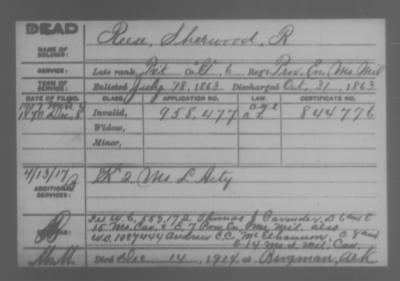 DEAD
NAME OF SOLDIER: Reese, Sherwood, R
SERVICE: Late rank, Pvt Co "G", 6 Reg't Prov. En. Mo. Mil
TERM OF SERVICE: Enlisted July 28, 1863 Discharged Oct. 31, 1863
DATE OF FILING. CLASS. APPLICATION NO. LAW. CERTIFICATE NO.
1890 Dec, 8 Invalid, 958,477 age 844776
Widow,
Minor,
4/13/17
ADDITIONAL SERVICES: K 2 Mo. L Arty
REMARKS: W.C. 853,172 Thomas J. Cavender, D 6 and E
15 Mo. Cav. & C. 7 Prov. En. Mo. Mil. also
W.O. 1087444 Andrew C.C. McElhannon, C 8 and
E 14 Mo. S. Mil. Cav.
Died Dec 14, 1914, at Bergman, Ark